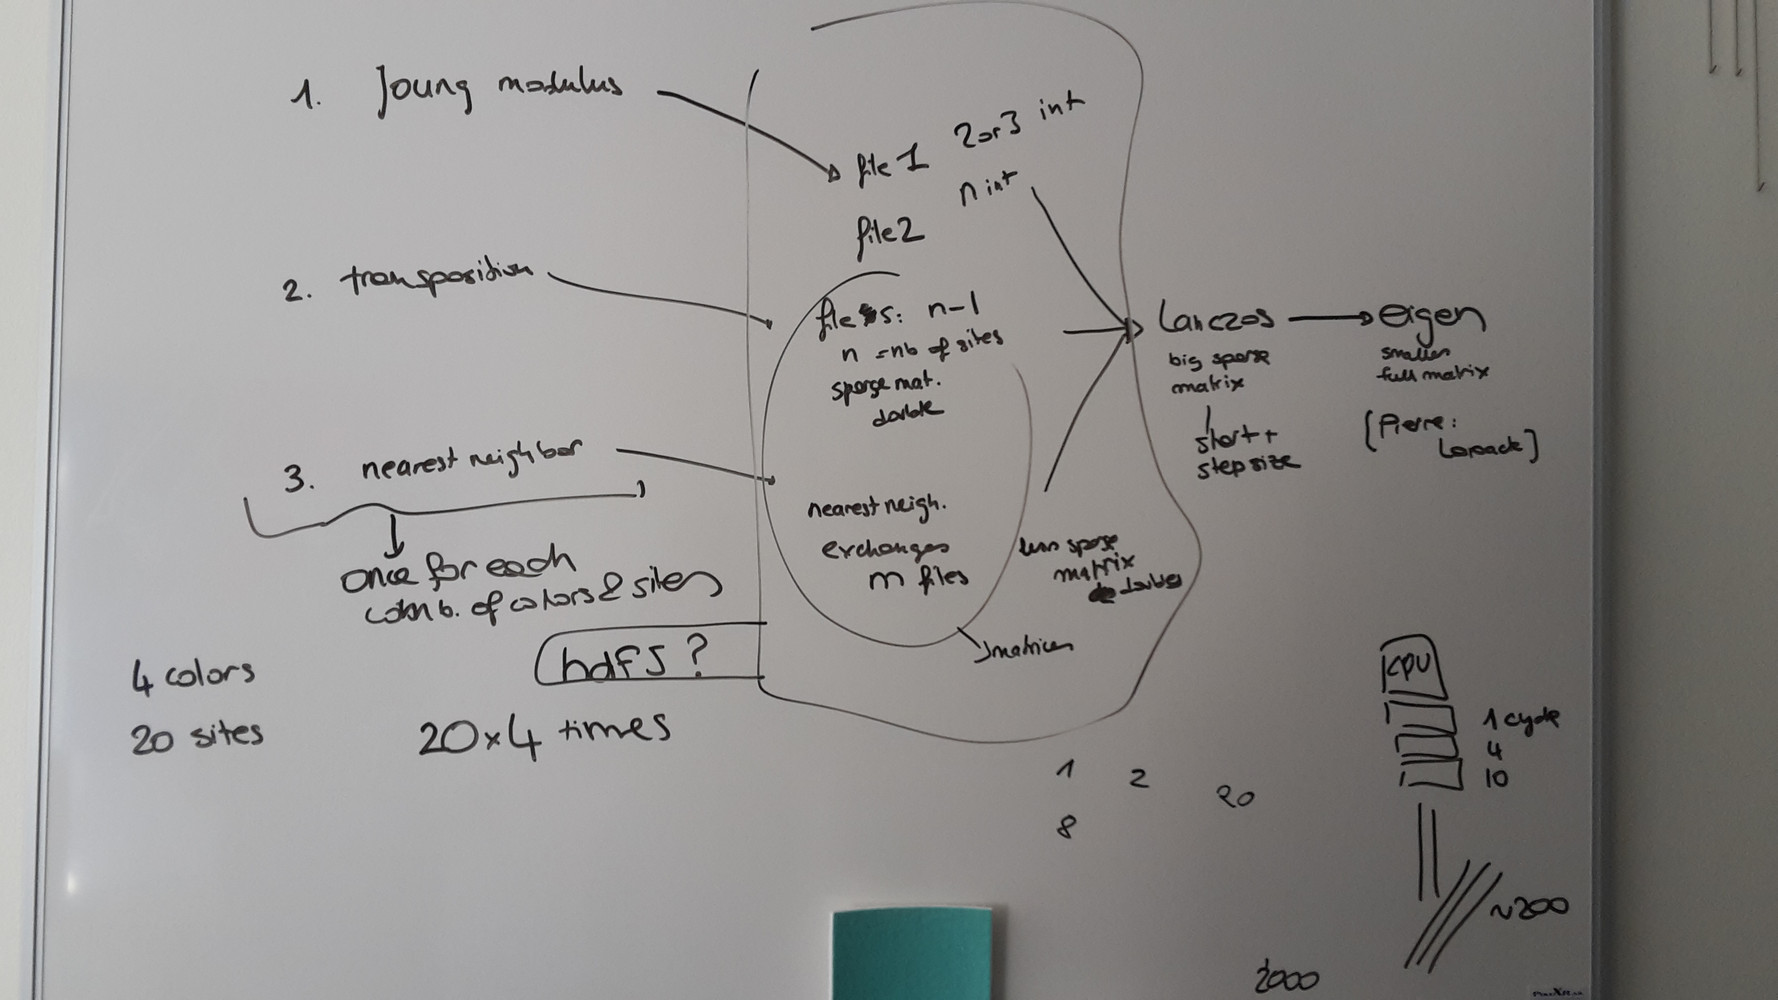 1. Joung modulus
2. transposition
3. nearest neighbor
once for each
comb. of colors & sites
4 colors
20 sites
20×4 times
hdf5?
file 1 2 or 3 int
n int
file 2
files: n-1
n = nb of sites
sparse mat.
double
nearest neigh.
exchanges
m files
less sparse
matrix
doubles
matrices
Lanczos
big sparse
matrix
start +
step size
eigen
smaller
full matrix
[Pierre:
Lapack]
CPU
1 cycle
4
10
~200
2000
1 2 20
8